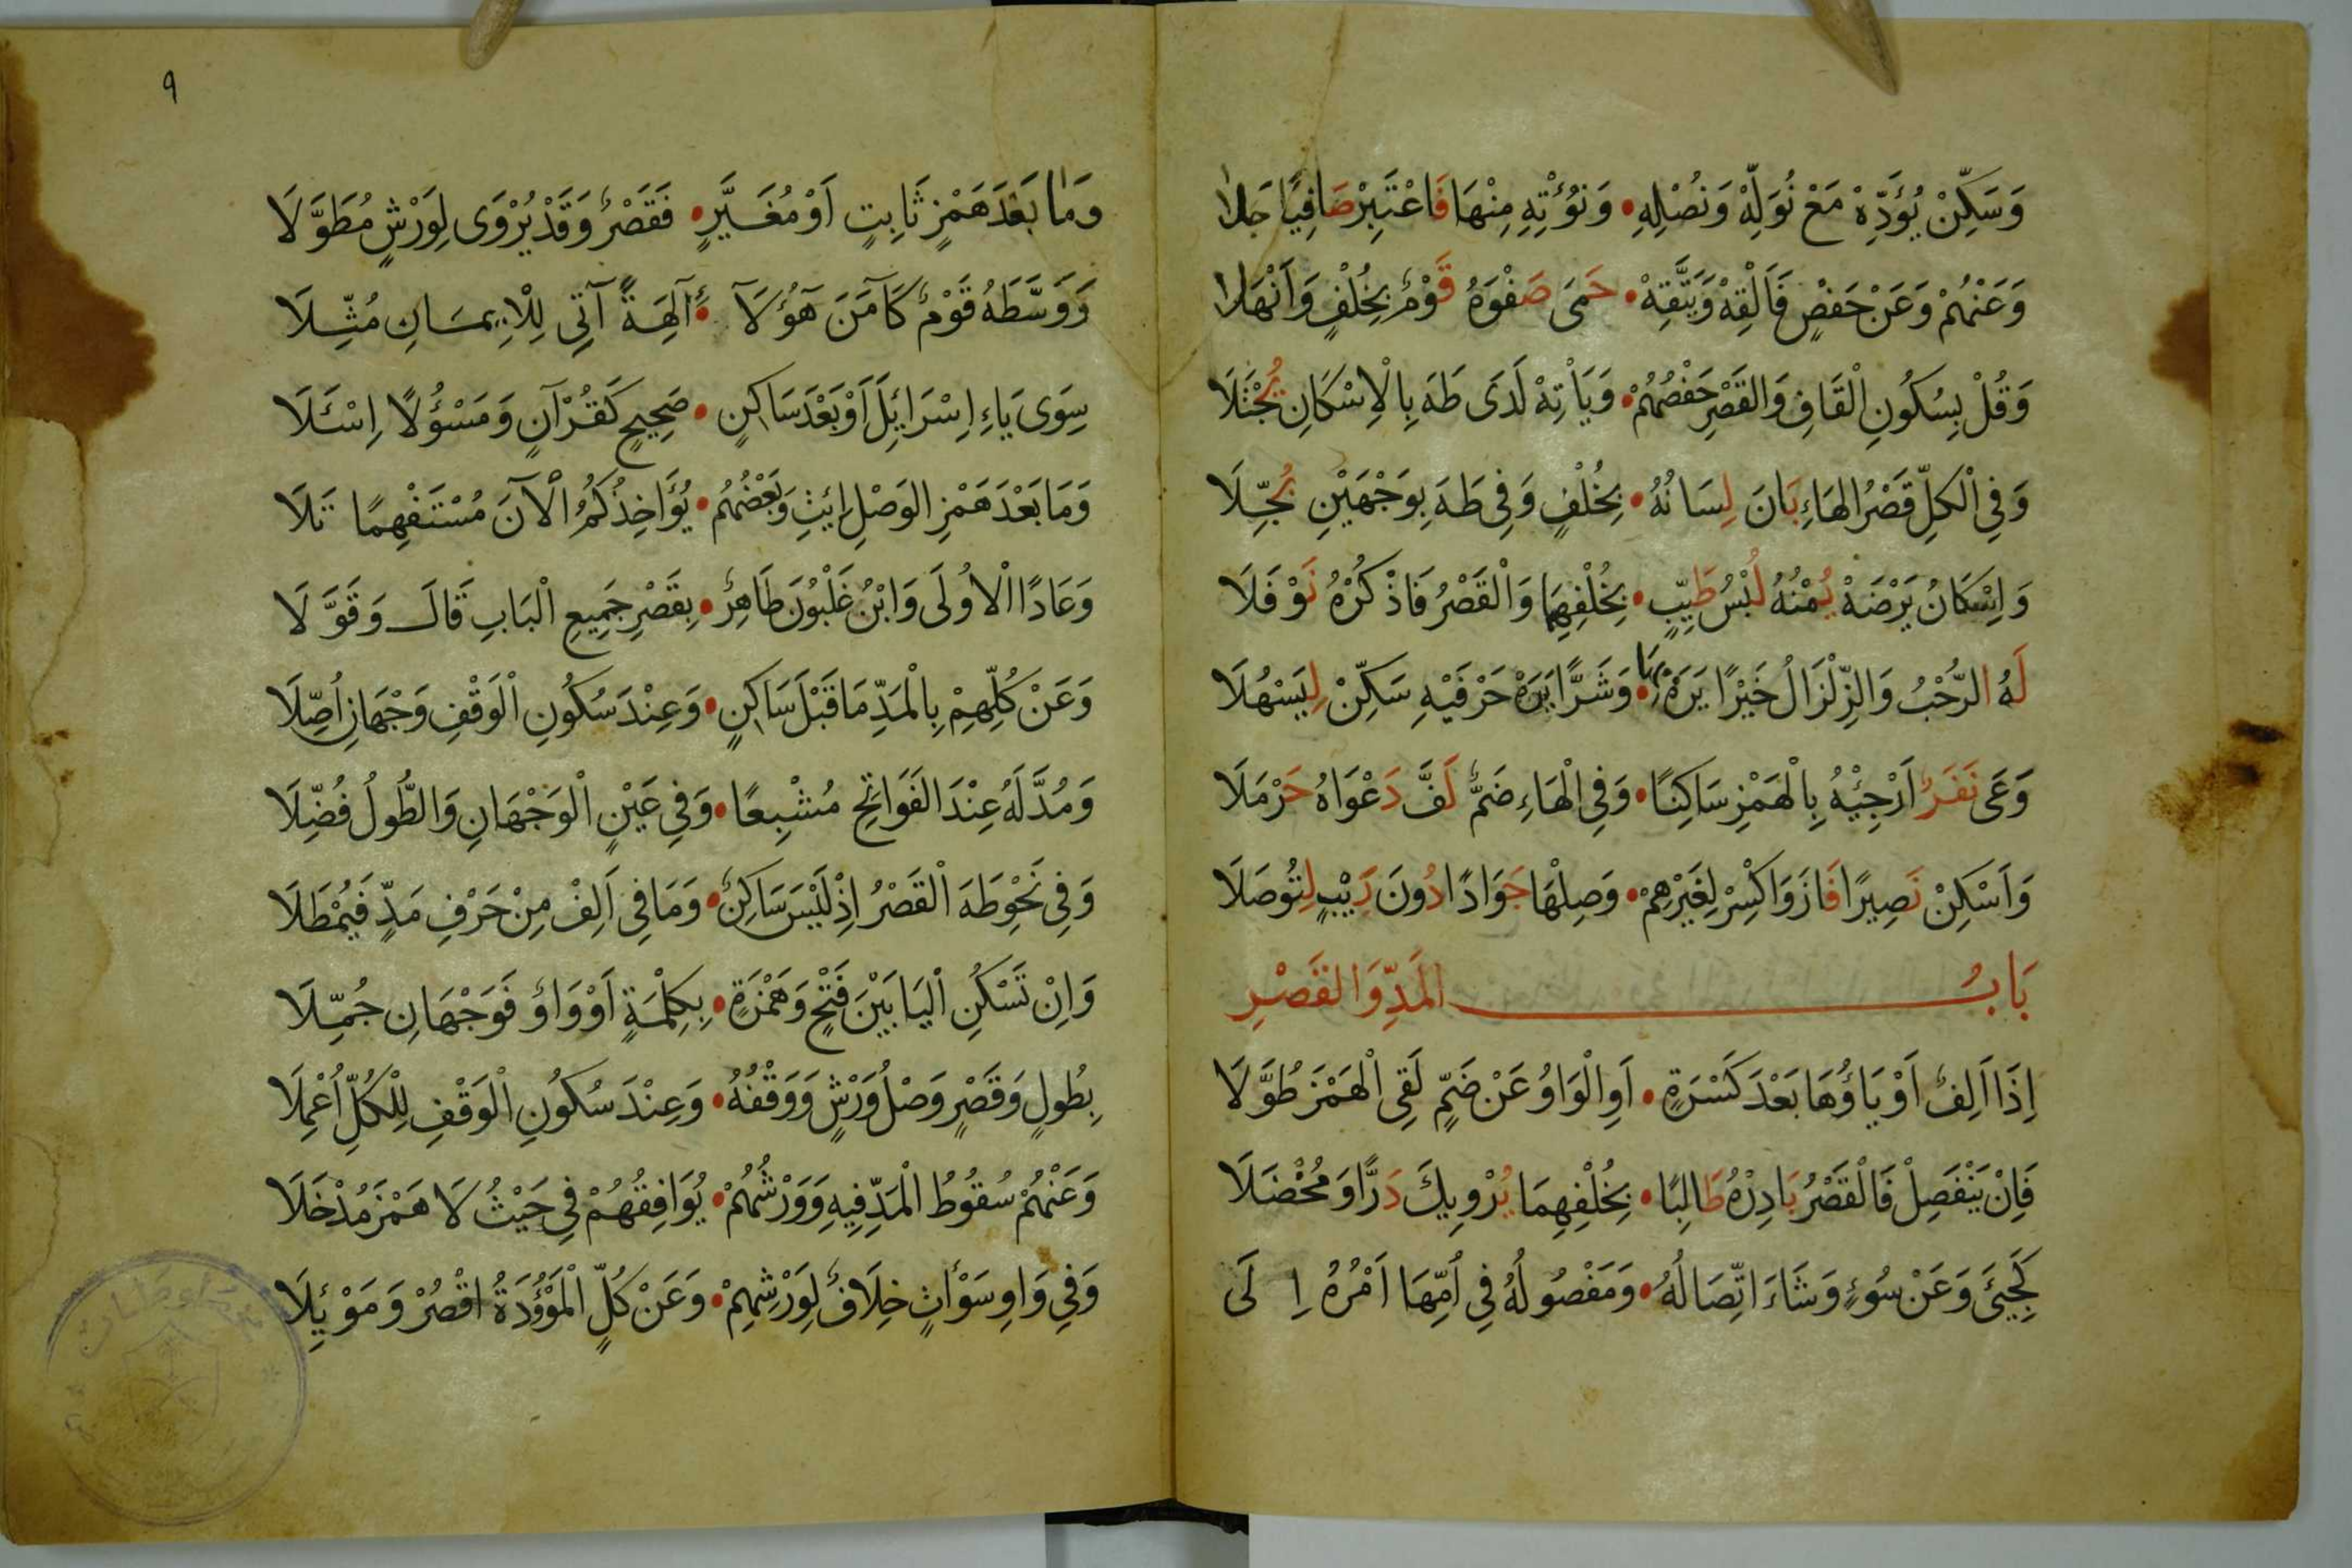 وَسَكِّنْ يُؤَدِّهْ مَعْ نُوَلِّهْ وَنُصْلِهِ • وَنُؤْتِهِ مِنْهَا فَاعْتَبِرْ صَافِيًا حَلَا
وَعَنْهُمْ وَعَنْ حَفْصٍ فَأَلْقِهْ وَيَتَّقِهْ • حَمَى صَفْوَهُ قَوْمٌ بِخُلْفٍ وَأَنْهَلَا
وَقُلْ بِسُكُونِ الْقَافِ وَالْقَصْرِ حَفْصُهُمْ • وَيَأْتِهْ لَدَى طَهَ بِالْإِسْكَانِ يُجْتَلَا
وَفِي الْكلِّ قَصْرُ الهَاءِ بَانَ لِسَانُهُ • بِخُلْفٍ وَفِي طَهَ بِوَجْهَيْنِ بُجِّلَا
وَإِسْكَانُ يَرْضَهْ يُمْنُهُ لُبْسُ طَيِّبٍ • بِخُلْفِهِمَا وَالْقَصْرُ فَاذْكُرْهُ نَوْفَلَا
لَهُ الرُّحْبُ وَالزِّلْزَالُ خَيْرًا يَرَهْ بِهَا • وَشَرًّا يَرَهْ حَرْفَيْهِ سَكِّنْ لِيَسْهُلَا
وَعَى نَفَرٌ أَرْجِئْهُ بِالْهَمْزِ سَاكِنًا • وَفِي الْهَاءِ ضَمٌّ لَفَّ دَعْوَاهُ حَرْمَلَا
وَأَسْكِنْ نَصِيرًا فَازَ وَاكْسِرْ لِغَيْرِهِمْ • وَصِلْهَا جَوَادًا دُونَ رَيْبٍ لِتُوصَلَا
بَابُ المَدِّ وَالقَصْرِ
إِذَا أَلِفٌ أَوْ يَاؤُهَا بَعْدَ كَسْرَةٍ • أَوِ الْوَاوُ عَنْ ضَمٍّ لَقِى الْهَمْزَ طُوَّلَا
فَإِنْ يَنْفَصِلْ فَالْقَصْرُ بَادِرْهُ طَالِبًا • بِخُلْفِهِمَا يُرْوِيكَ دَرًّا وَمُخْضَلَا
كَجِيئَ وَعَنْ سُوءٍ وَشَاءَ اتِّصَالُهُ • وَمَفْصُولُهُ فِي أُمِّهَا أَمْرُهُ إِلَى
٩
وَمَا بَعْدَ هَمْزٍ ثَابِتٍ أَوْ مُغَيَّرٍ • فَقَصْرٌ وَقَدْ يُرْوَى لِوَرْشٍ مُطَوَّلَا
وَوَسَّطَهُ قَوْمٌ كَآمَنَ هَؤُلَآ • ءِ آلِهَةً آتِي لِلْإِيمَانِ مُثِّلَا
سِوَى يَاءِ إِسْرَائِلَ أَوْ بَعْدَ سَاكِنٍ • صَحِيحٍ كَقُرْآنٍ وَمَسْؤُلًا إِسْئَلَا
وَمَا بَعْدَ هَمْزِ الوَصْلِ إِئِيثِ وَبَعْضُهُمُ • يُؤَاخِذُكُمُ الْآنَ مُسْتَفْهِمًا تَلَا
وَعَادًا الْأُولَى وَابْنُ غَلْبُونَ طَاهِرٌ • بِقَصْرِ جَمِيعِ الْبَابِ قَالَ وَقَوَّلَا
وَعَنْ كُلِّهِمْ بِالْمَدِّ مَا قَبْلَ سَاكِنٍ • وَعِنْدَ سُكُونِ الْوَقْفِ وَجْهَانِ أُصِّلَا
وَمُدَّ لَهُ عِنْدَ الفَوَاتِحِ مُشْبِعًا • وَفِي عَيْنٍ الْوَجْهَانِ وَالطُّولُ فُضِّلَا
وَفِي نَحْوِ طَهَ الْقَصْرُ إِذْ لَيْسَ سَاكِنٌ • وَمَا فِي أَلِفْ مِنْ حَرْفِ مَدٍّ فَيُمْطَلَا
وَإِنْ تَسْكُنِ الْيَا بَيْنَ فَتْحٍ وَهَمْزَةٍ • بِكِلْمَةٍ أَوْ وَاوٌ فَوَجْهَانِ جُمِّلَا
بِطُولٍ وَقَصْرٍ وَصْلُ وَرْشٍ وَوَقْفُهُ • وَعِنْدَ سُكُونِ الْوَقْفِ لِلْكُلِّ أُعْمِلَا
وَعَنْهُمْ سُقُوطُ الْمَدِّ فِيهِ وَوَرْشُهُمْ • يُوَافِقُهُمْ فِي حَيْثُ لَا هَمْزَ مُدْخَلَا
وَفِي وَاوِ سَوْآتٍ خِلَافٌ لِوَرْشِهِمْ • وَعَنْ كُلٍّ الْمَوْؤُدَةُ اقْصُرْ وَمَوْئِلَا